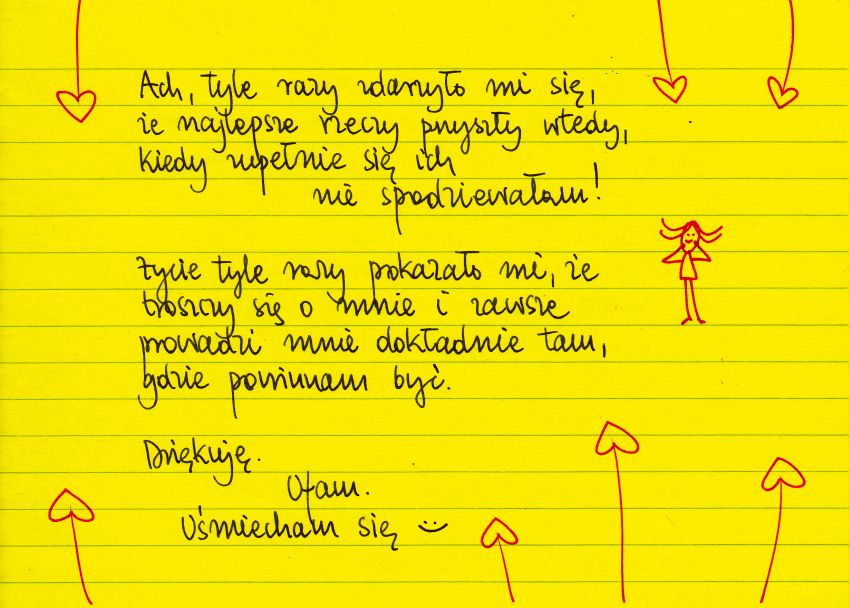 Ach, tyle razy zdarzyło mi się,
że najlepsze rzeczy przyszły wtedy,
kiedy zupełnie się ich
nie spodziewałam!
Życie tyle razy pokazało mi, że
troszczy się o mnie i zawsze
prowadzi mnie dokładnie tam,
gdzie powinnam być.
Dziękuję.
Ufam.
Uśmiecham się :)